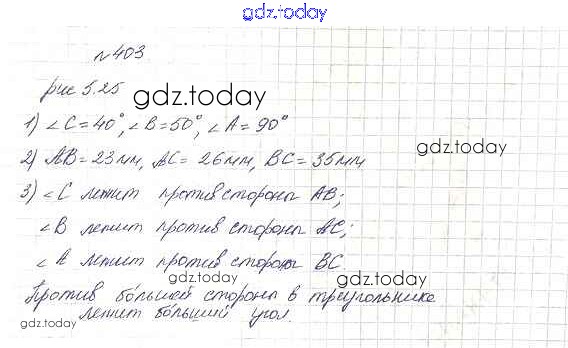 gdz.today
№403
рис 5.25
gdz.today
1) ∠C=40°, ∠B=50°, ∠A=90°
2) AB=23мм, AC=26мм, BC=35мм
gdz.today
3) ∠C лежит против стороны AB;
∠B лежит против стороны AC;
∠A лежит против стороны BC.
gdz.today
Против бо́льшей стороны в треугольнике
gdz.today
лежит бо́льший угол.